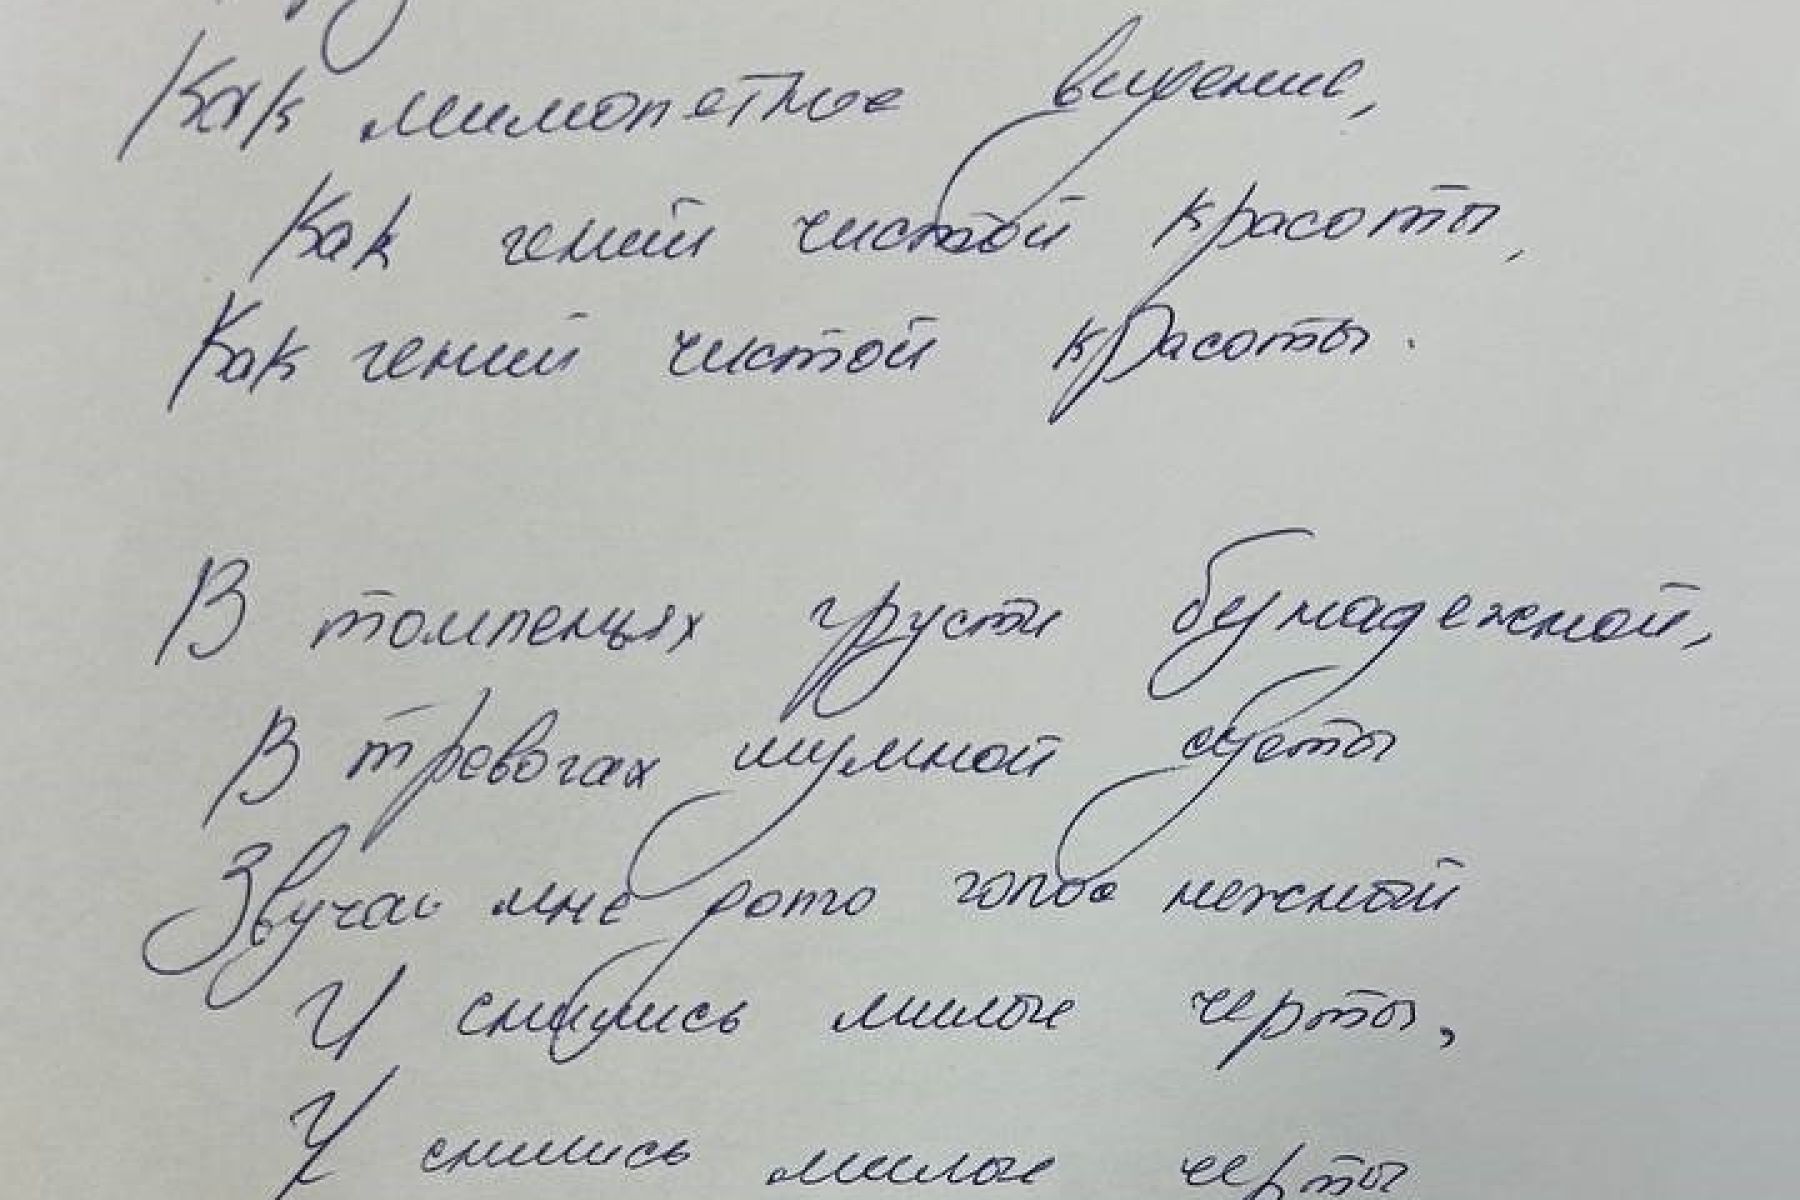 Как мимолетное видение,
Как гений чистой красоты,
Как гений чистой красоты.
В томленьях грусти безнадежной,
В тревогах шумной суеты
Звучал мне долго голос нежный
И снились милые черты,
И снились милые черты